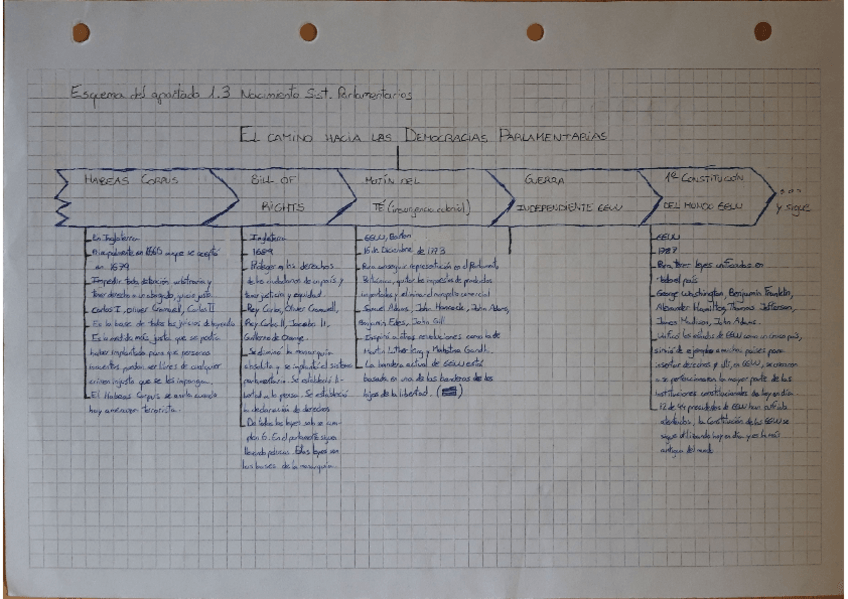 Esquema del apartado 1.3 Nacimiento Sist. Parlamentarios
EL CAMINO HACIA LAS DEMOCRACIAS PARLAMENTARIAS
HABEAS CORPUS
BILL OF
RIGHTS
MOTÍN DEL
TÉ (insurgencia colonial)
GUERRA
INDEPENDIENTE EEUU
1ª CONSTITUCIÓN
DEL MUNDO EEUU
...
y sigue
En Inglaterra
en 1679
Impedir toda detención arbitraria y
tener derecho a un abogado, y juicio justo.
Carlos I, Oliver Cromwell, Carlos II
Es la base de todos los juicios de hoy en día
Es la medida más justa que se podía
haber implantado para que personas
inocentes, puedan ser libres de cualquier
crimen injusto que se les imponga.
El Habeas Corpus se evita cuando
hay amenaza terrorista.
Inglaterra
1689
Proteger a los derechos
de los ciudadanos de un país y
tener justicia y equidad.
Rey Carlos, Oliver Cromwell,
Rey Carlos II, Jacobo II,
Guillermo de Orange.
Se eliminó la monarquía
absoluta y se implantó el sistema
parlamentario. Se estableció li-
bertad a la prensa. Se estableció
la declaración de derechos
De todas las leyes solo se cum-
plen 6. En el parlamento sigue
habiendo Estas leyes son
las bases de la monarquía.
EEUU, Boston
16 de Diciembre de 1773
Para conseguir representación en el Parlamento
Británico, quitar los impuestos de productos
importados y eliminar el monopolio comercial
Samuel Adams, John Hancock, John Adams,
Benjamin Edes, John Gill
Inspiró a otras revoluciones como la de
Martin Luther King y Mahatma Gandhi.
La bandera actual de EEUU está
basada en una de las banderas de los
hijos de la libertad.
EEUU
1787
Para tener leyes unificadas en
todo el país
George Washington, Benjamin Franklin,
Alexander Hamilton, Thomas Jefferson,
James Madison, John Adams.
Unificó los estados de EEUU como un único país,
sirvió de ejemplo a muchos países para
insertar derechos y allí, en EEUU, se crearon
o se perfeccionaron la mayor parte de las
instituciones constitucionales de hoy en día.
12 de 44 presidentes de EEUU han sufrido
atentados; la Constitución de los EEUU se
sigue utilizando hoy en día y es la más
antigua del mundo